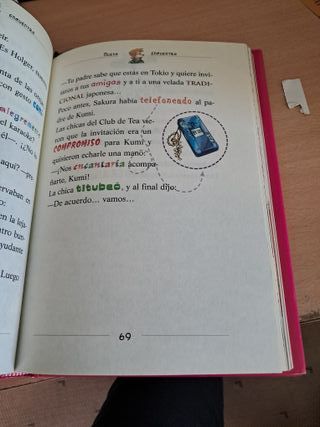 CHIRUSHITA
cir.
Es Holger,
nta de las
con gesto
el karaoke?
aquí? —pre-
ervaban en
en la leja-
tro bun-
yudante
Luego
—Tu padre sabe que estás en Tokio y quiere invi-
taros a tus amigas y a ti a una velada TRADI-
CIONAL japonesa...
Poco antes, Sakura había telefoneado al pa-
dre de Kumi.
Las chicas del Club de Tea vie-
ron que la invitación era un
COMPROMISO para Kumi y
quisieron echarle una mano:
—¡Nos encantaría acompa-
ñarte, Kumi!
La chica titubeó, y al final dijo:
—De acuerdo... vamos...
69